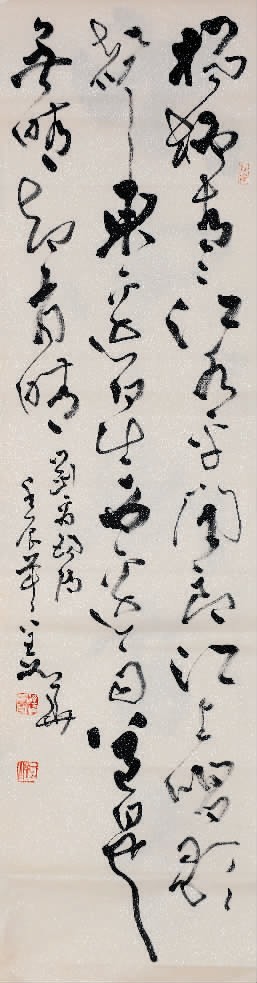 楊柳青〻江水平聞郎江上唱歌
聲東邊日出西邊雨道是
無晴却有晴
劉禹錫詩
壬辰